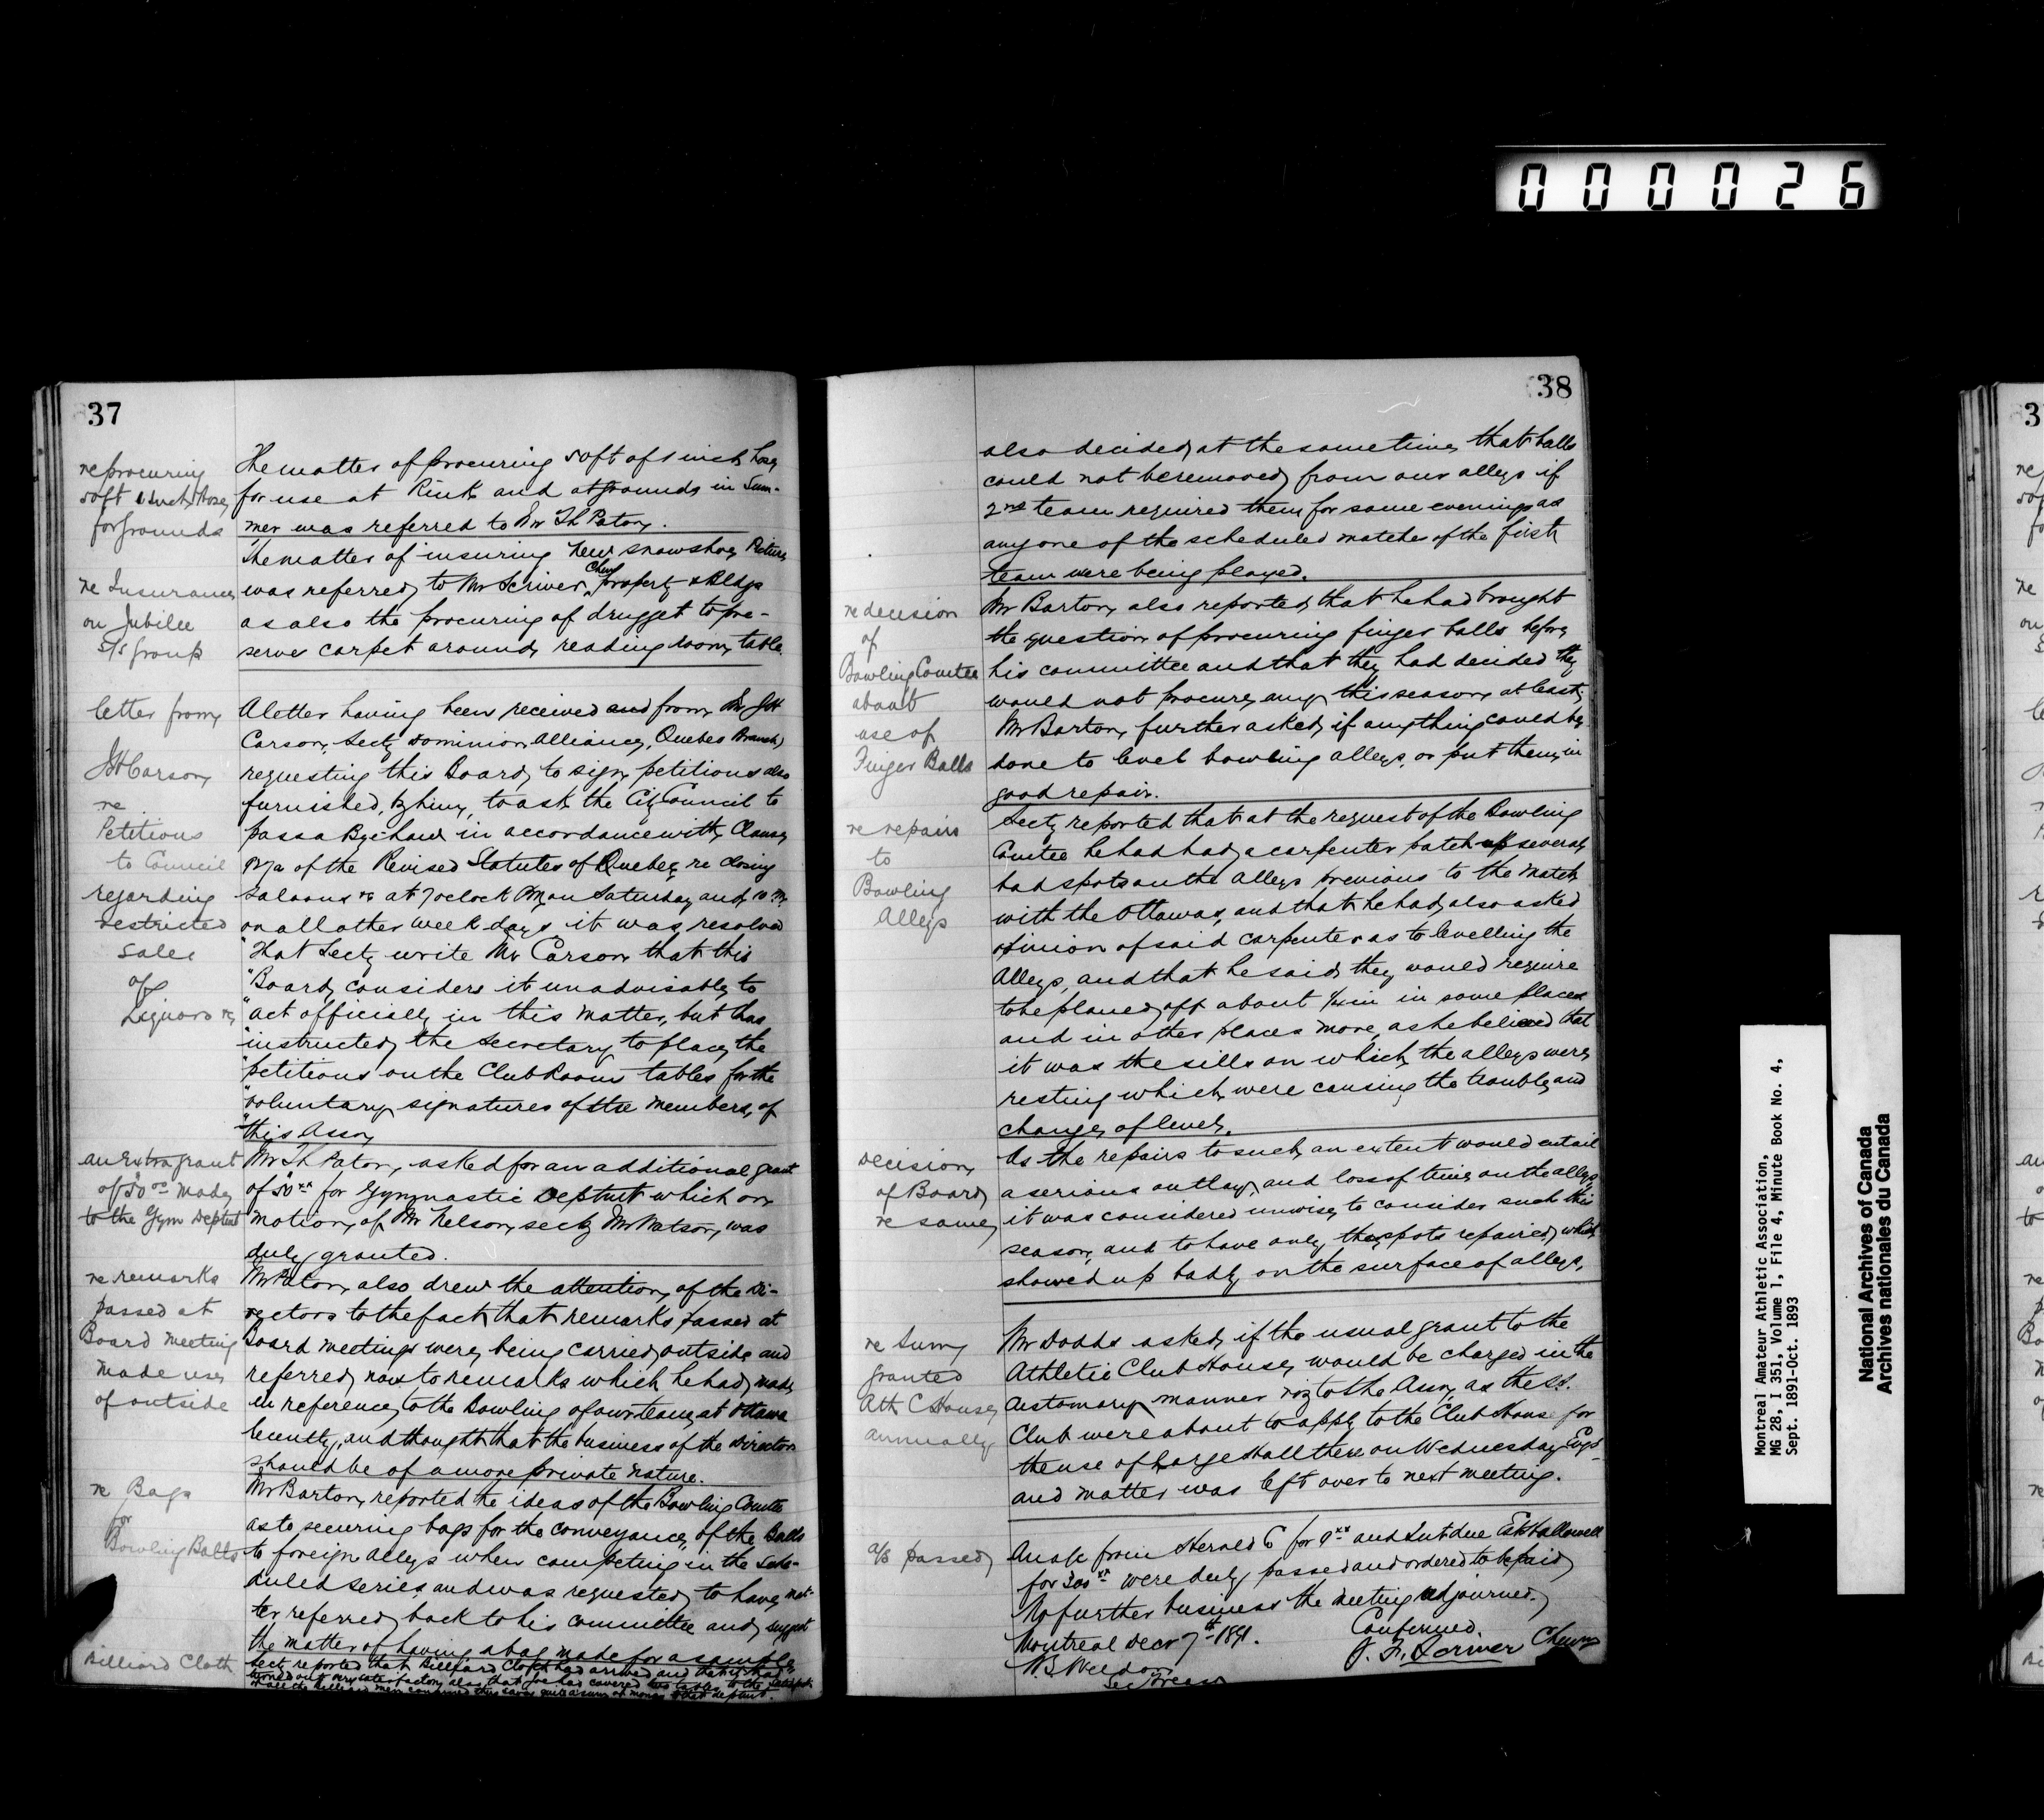 000026
37
re procuring
50ft 1 Inch Hose
for Grounds
The matter of procuring 50ft of 1 inch hose
for use at Rink and at grounds in Sum-
mer was referred to Mr Th Paton.
re Insurance
on Jubilee
S/S group
The matter of insuring new snowshoe Picture
was referred to Mr Scriver, Chm property & Bldgs
as also the procuring of drugget to pre-
serve carpet around reading room table.
letter from
JH Carson
re
Petitions
to Council
regarding
restricted
sale
of
Liquors &c
A letter having been received and from Mr JH
Carson, Secty Dominion Alliance, Quebec Branch
requesting this Board to sign petitions also
furnished by him, to ask the City Council to
pass a Bye-law in accordance with Clause
of the Revised Statutes of Quebec re closing
Saloons &c at 7 oclock PM on Saturday and 10 PM
on all other week days it was resolved
"That Secty write Mr Carson that this
"Board considers it unadvisable to
"act officially in this matter, but has
"instructed the Secretary to place the
"petitions on the Club Room tables for the
"voluntary signatures of the members of
"this Assn
an Extra grant
of 50 00 made
to the Gym Deptmt
Mr Th Paton, asked for an additional grant
of 50 xx for Gymnastic Deptmt which on
motion of Mr Nelson, secty Mr Watson, was
duly granted.
re remarks
passed at
Board meeting
made use
of outside
Mr Paton also drew the attention of the Di-
rectors to the fact that remarks passed at
Board meetings were being carried outside and
referred now to remarks which he had made
in reference to the Bowling of our team at Ottawa
recently, and thought that the business of the Directors
should be of a more private nature.
re Bags
for
Bowling Balls
Mr Barton reported the ideas of the Bowling Comtee
as to securing bags for the conveyance of the Balls
to foreign Alleys when competing in the sche-
duled series, and was requested to have mat-
ter referred back to his committee and suggest
the matter of having a bag made for a sample
Billiard Cloth
Secty reported that Billiard Cloth had arrived and that it had
turned out very satisfactory also that he had covered tables to the
38
also decided at the same time that balls
could not be removed from our alleys if
2nd team required them for same evenings as
any one of the scheduled matches of the first
team were being played.
re decision
of
Bowling Comtee
about
use of
Finger Balls
Mr Barton, also reported that he had brought
the question of procuring finger balls before
his committee and that they had decided they
would not procure any this season at least.
Mr Barton, further asked if anything could be
done to level bowling alleys, or put them in
good repair.
re repairs
to
Bowling
Alleys
Secty reported that at the request of the Bowling
Comtee he had had a carpenter patch up several
bad spots on the Alleys previous to the match
with the Ottawas, and that he had also asked
opinion of said carpenter as to levelling the
Alleys, and that he said they would require
to be planed off about 1/4 in in some places
and in other places more, as he believed that
it was the sills on which the alleys were
resting which were causing the trouble and
change of level.
Decision
of Board
re same
As the repairs to such an extent would entail
a serious outlay and loss of time on the alleys
it was considered unwise to consider such this
season and to have only the spots repaired which
showed up badly on the surface of alleys.
re Sum
granted
Ath C House
annually
Mr Dodds asked if the usual grant to the
Athletic Club House would be charged in the
customary manner viz to the Assn, as the SS.
Club were about to apply to the Club House for
the use of Large Hall there on Wednesday Evgs
and matter was left over to next meeting.
a/s passed
An a/c from Herald C for 9 xx and Int due Est Hallowell
for 300 xx were duly passed and ordered to be paid
No further business the meeting adjourned.
Confirmed.
Montreal Decr 7th 1891.
Chmn
Sec Treas
Montreal Amateur Athletic Association,
MG 28, I 351, Volume 1, File 4, Minute Book No. 4,
Sept. 1891-Oct. 1893
National Archives of Canada
Archives nationales du Canada